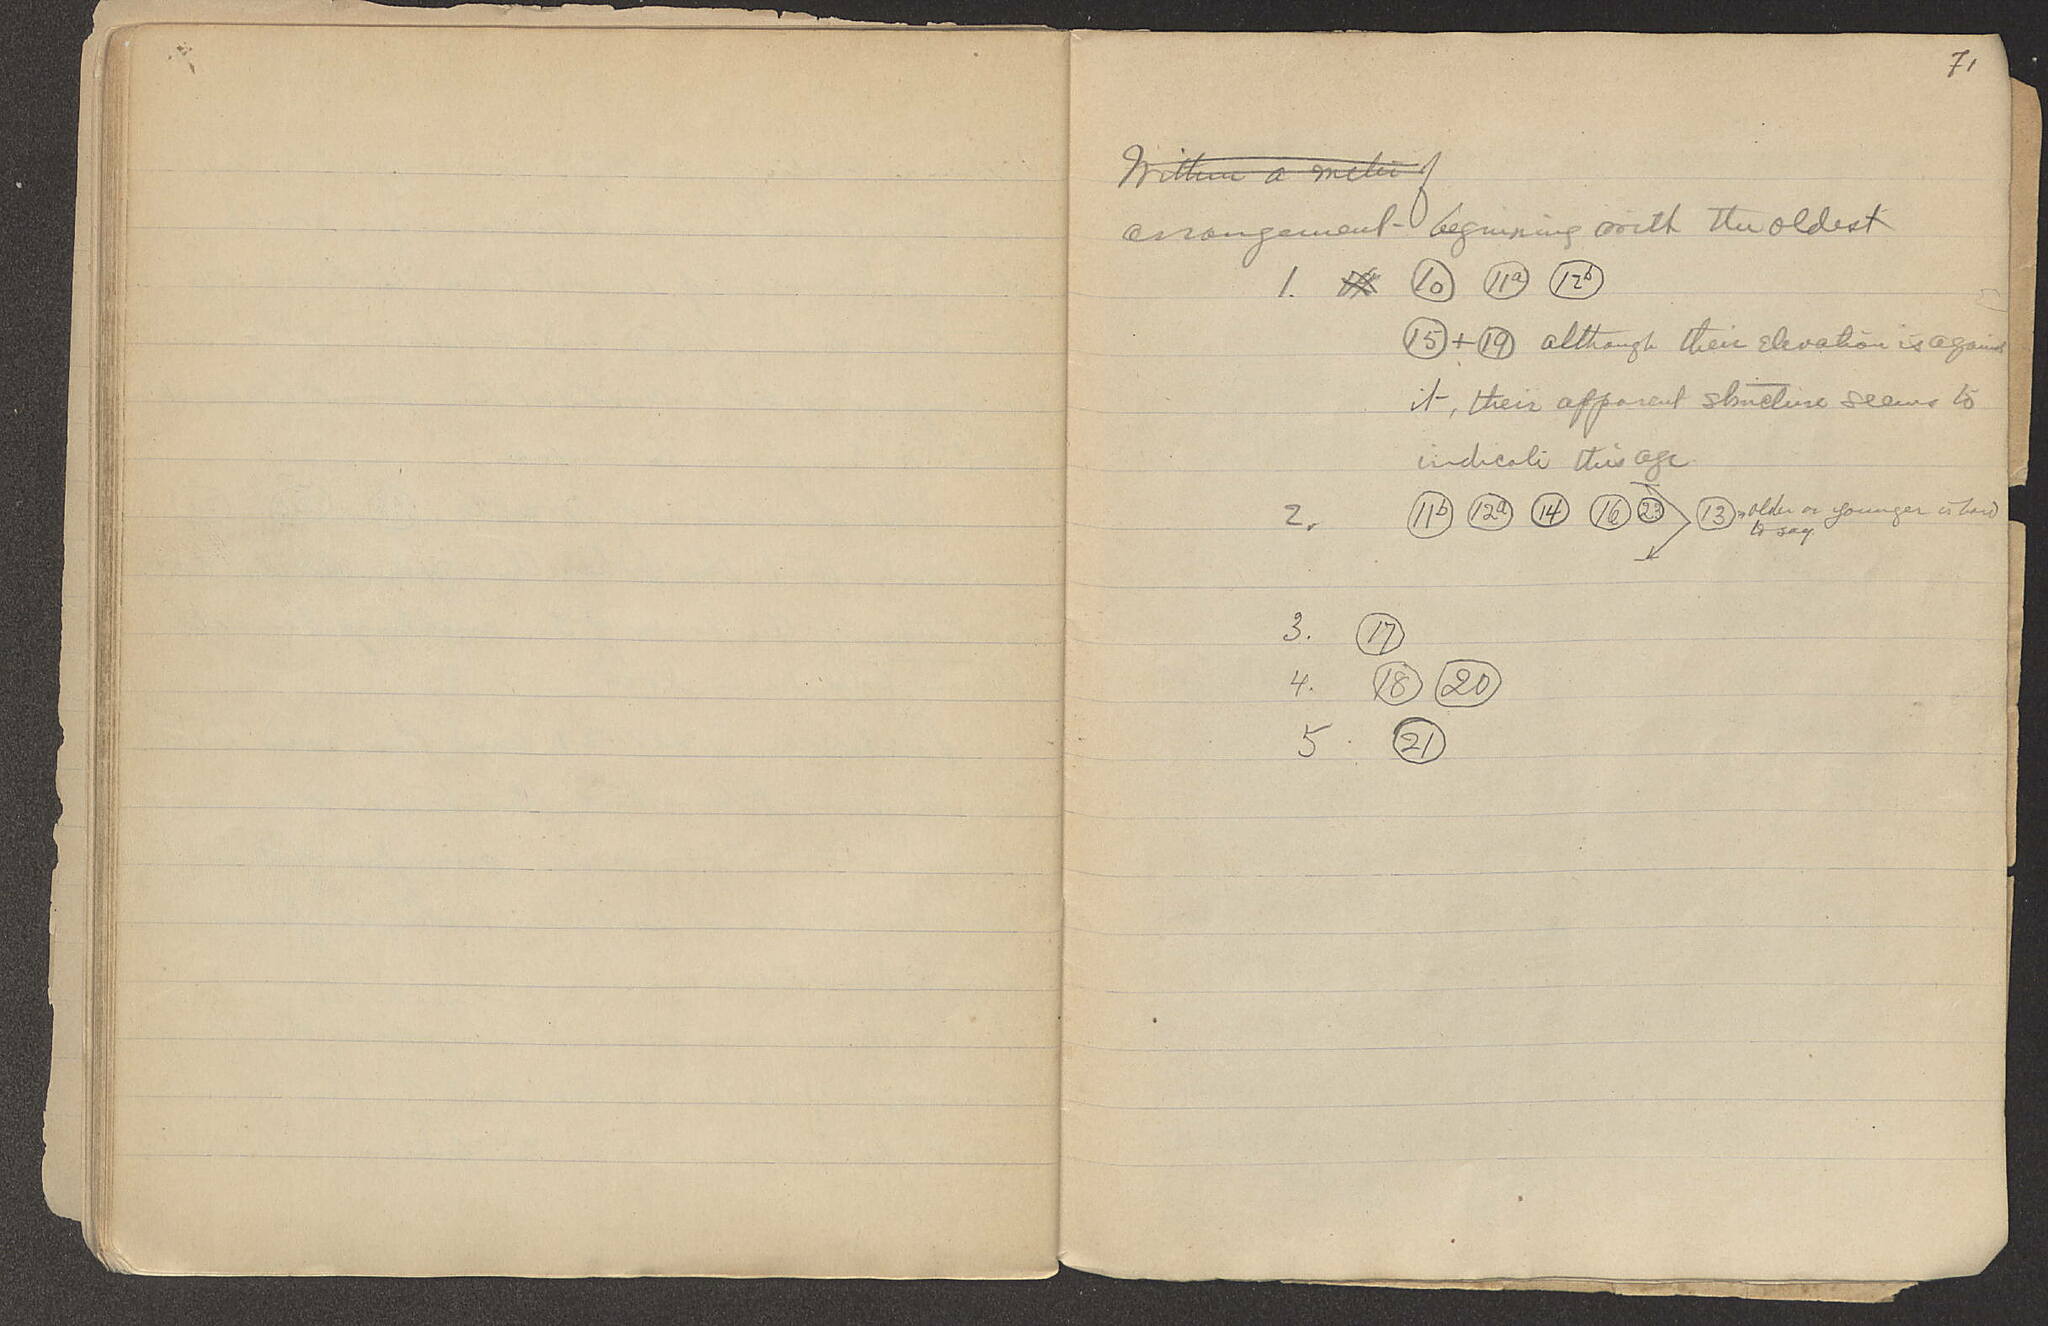 71
Within a meter of
arrangement - beginning with the oldest
1. 10 11a 12b
15 + 19 although their elevation is against
it, their apparent structure seems to
indicate this age
2. 11b 12a 14 16 23 13 older or younger is hard
to say
3. 17
4. 18 20
5. 21